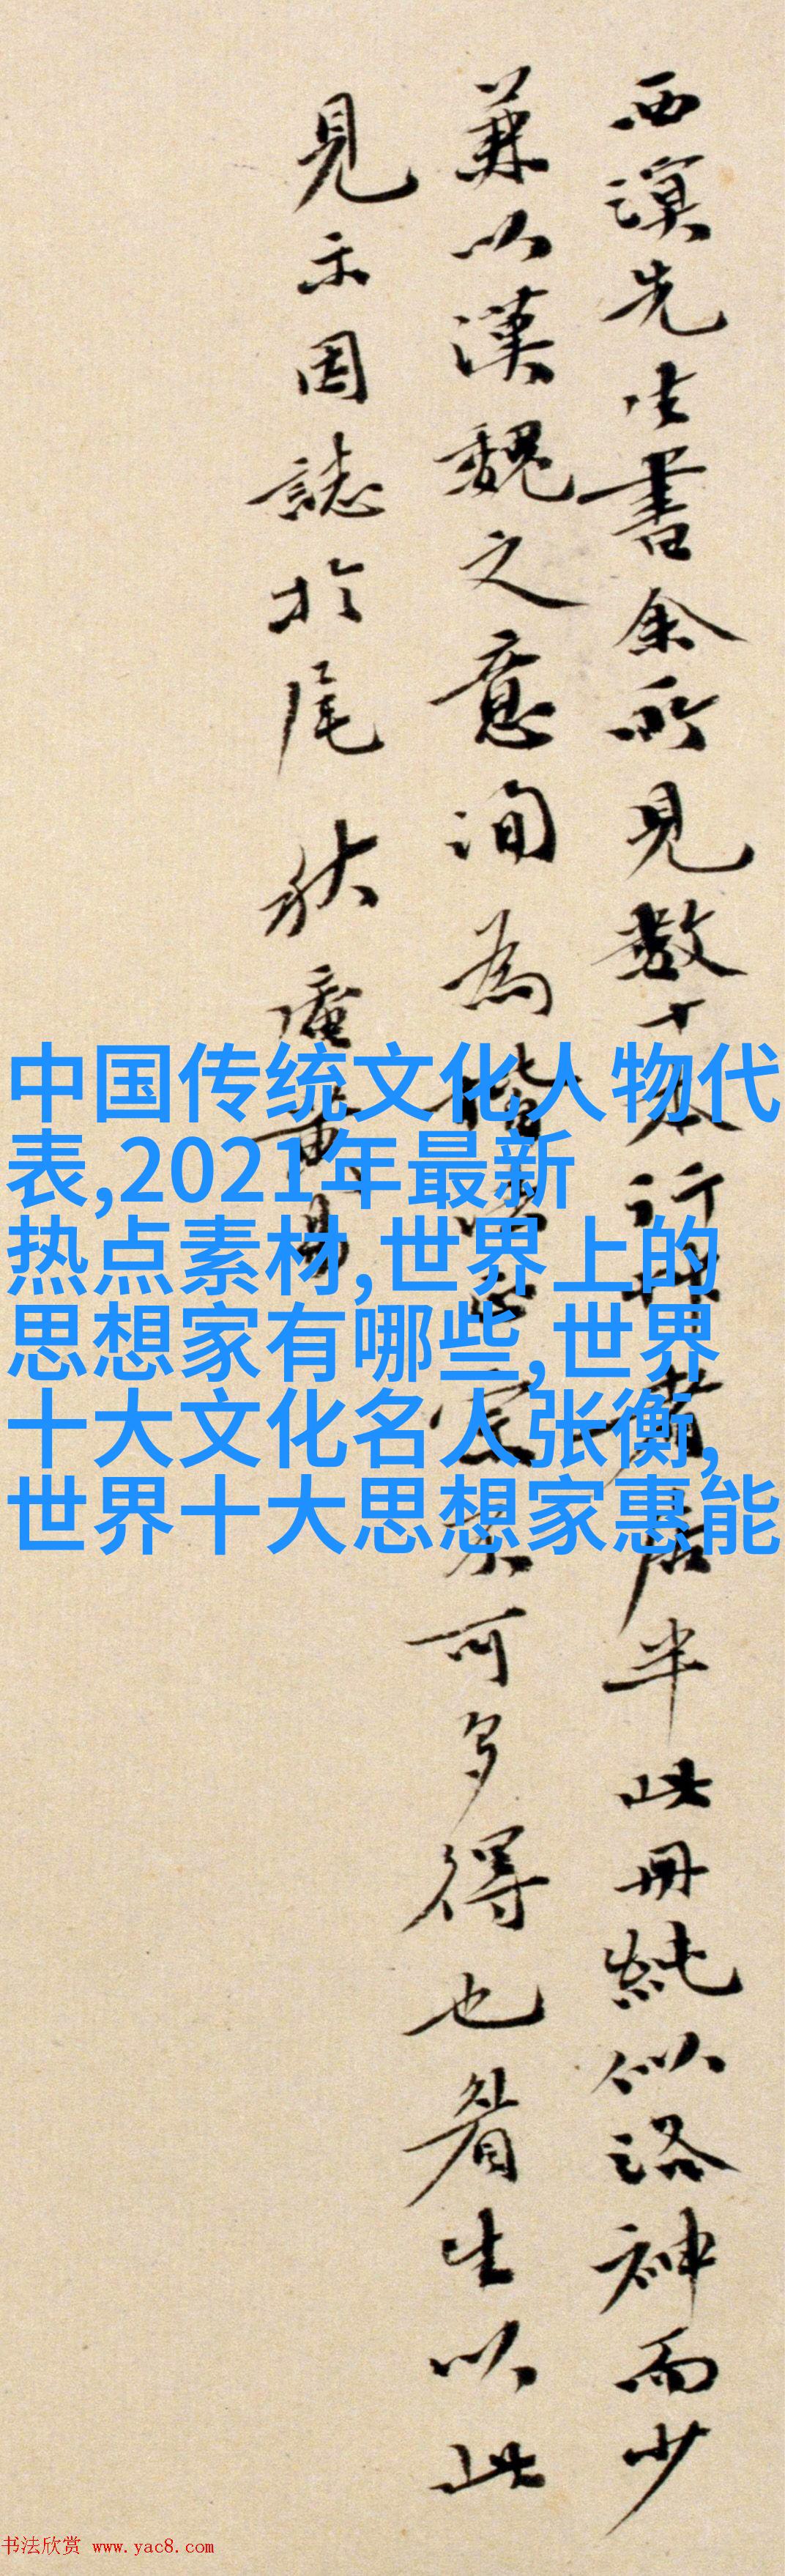 西溟先生書余所見數十本行草者居半此冊純似洛神而少
兼以漢魏之意洵為 家不可多得也眉生以此
見示因誌於尾 秋盦黃易
中国传统文化人物代
表,2021年最新
热点素材,世界上的
思想家有哪些,世界
十大文化名人张衡,
世界十大思想家惠能
书法欣赏 www.yac8.com